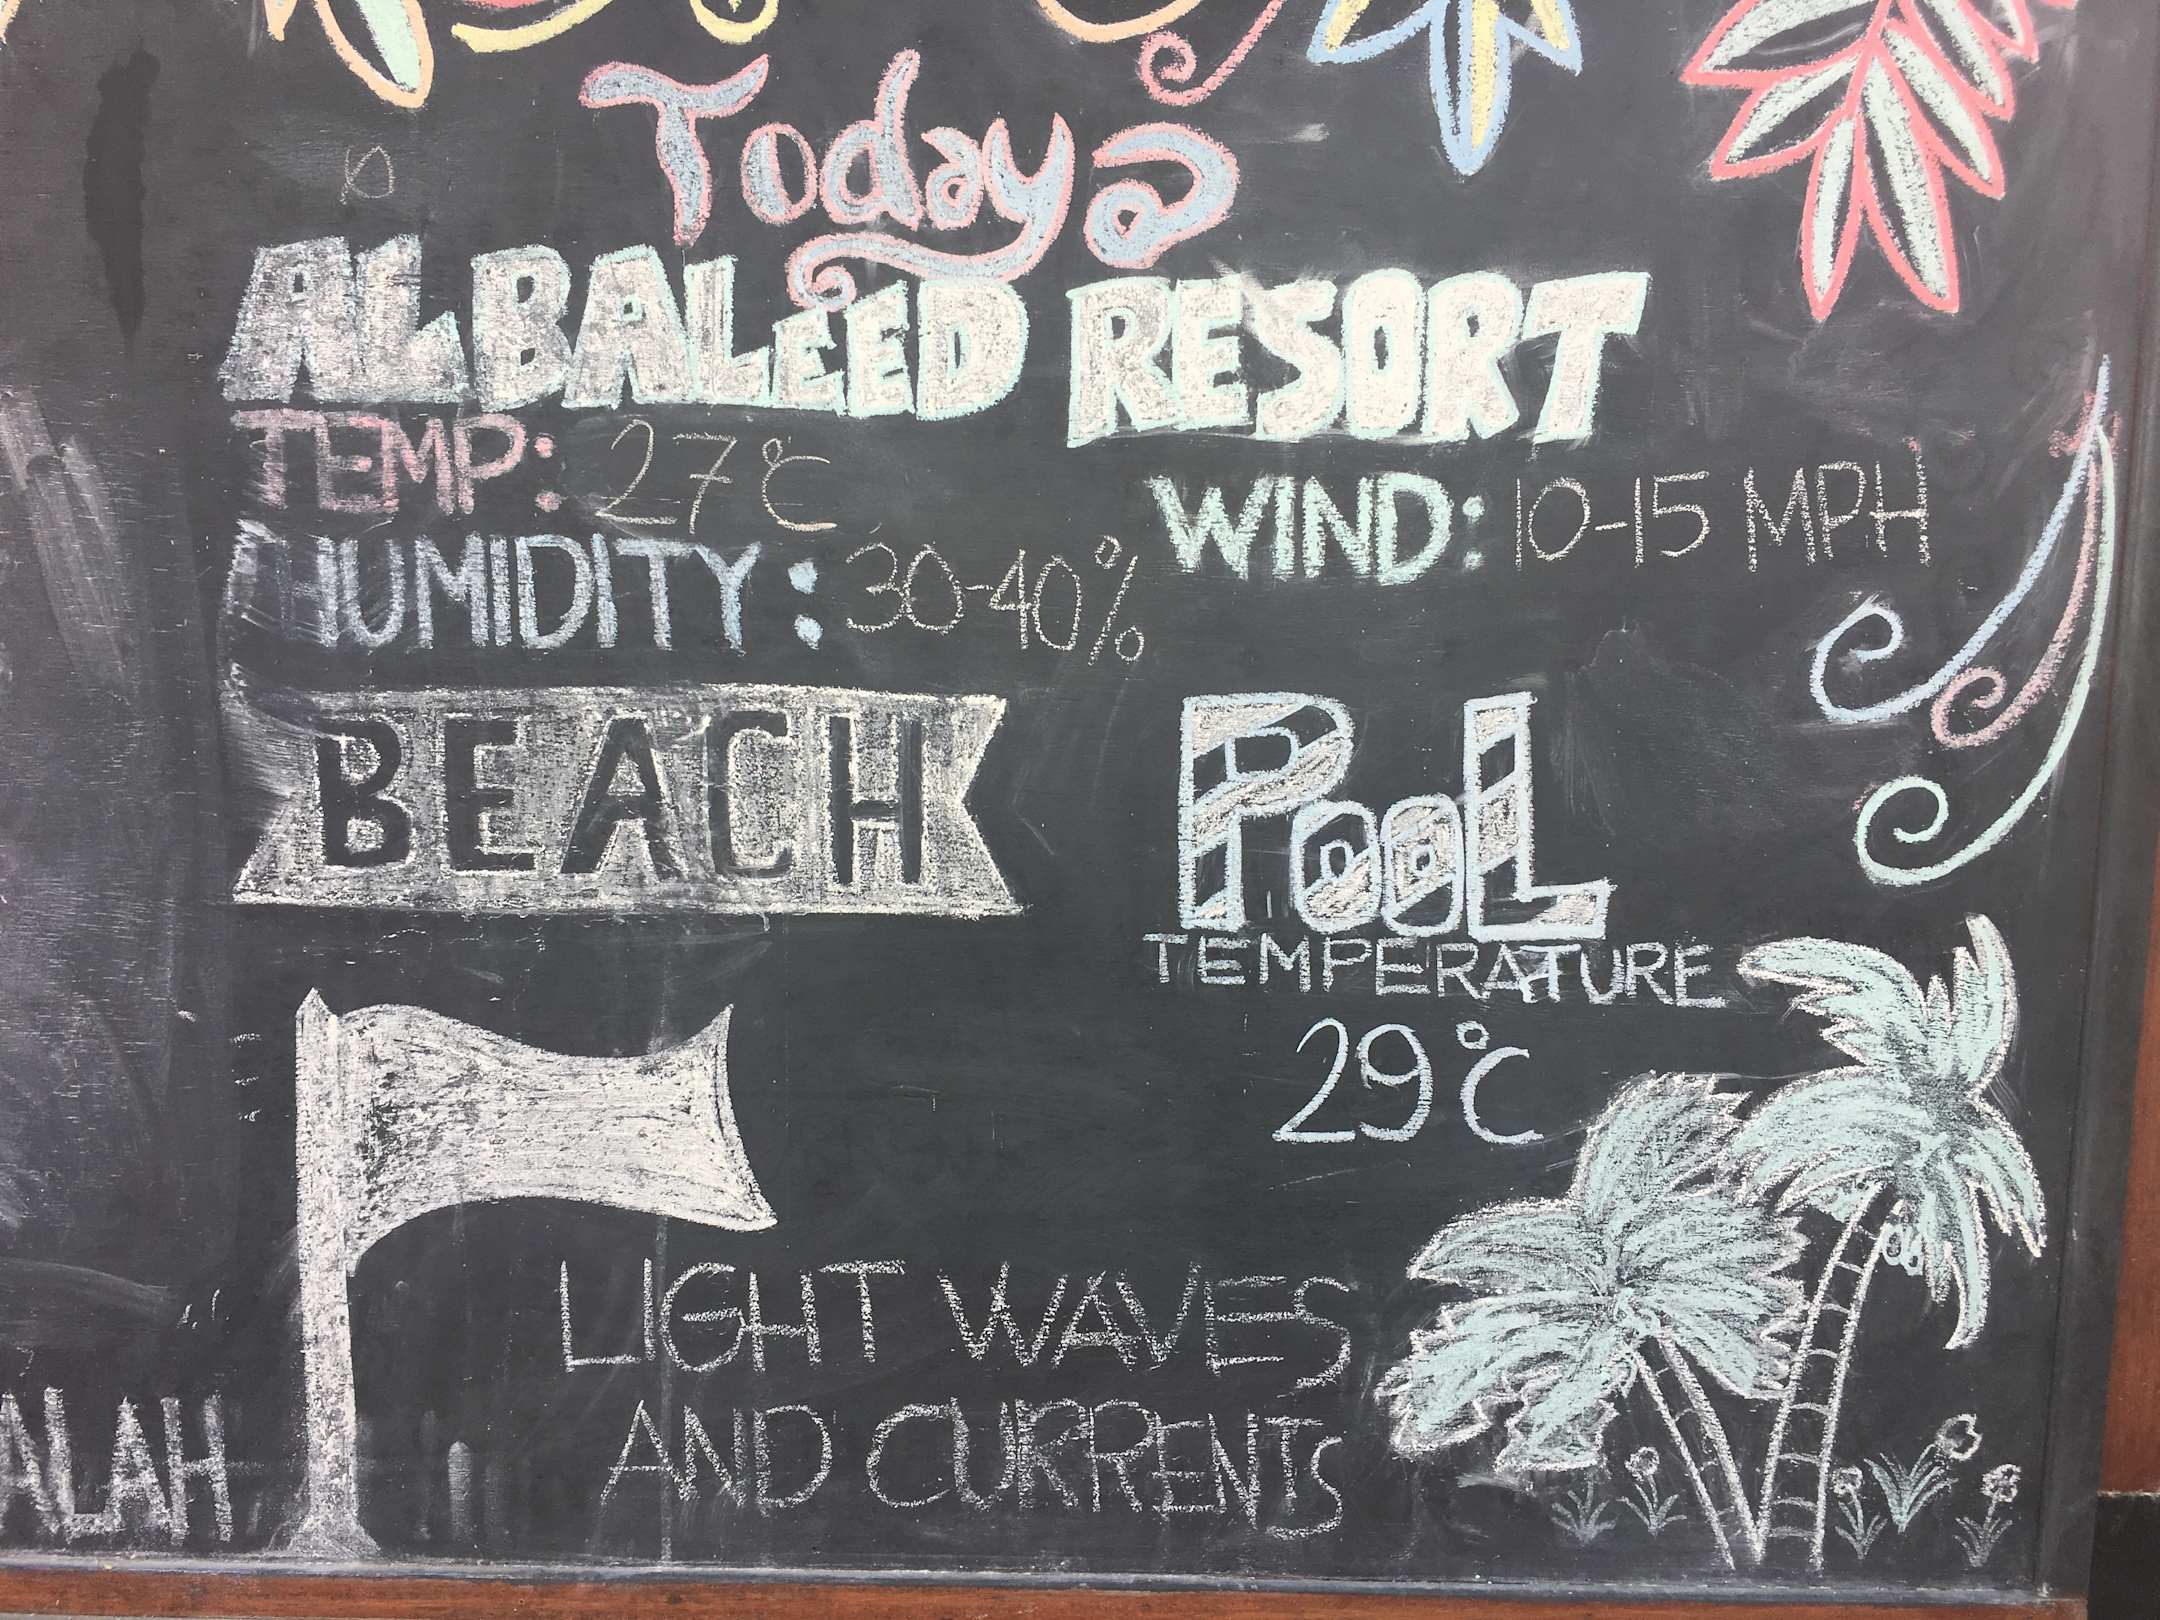 Today @
AL BALEED RESORT
TEMP: 27°C
WIND: 10-15 MPH
HUMIDITY: 30-40%
BEACH
POOL
TEMPERATURE
29°C
LIGHT WAVES
AND CURRENTS
ALAH